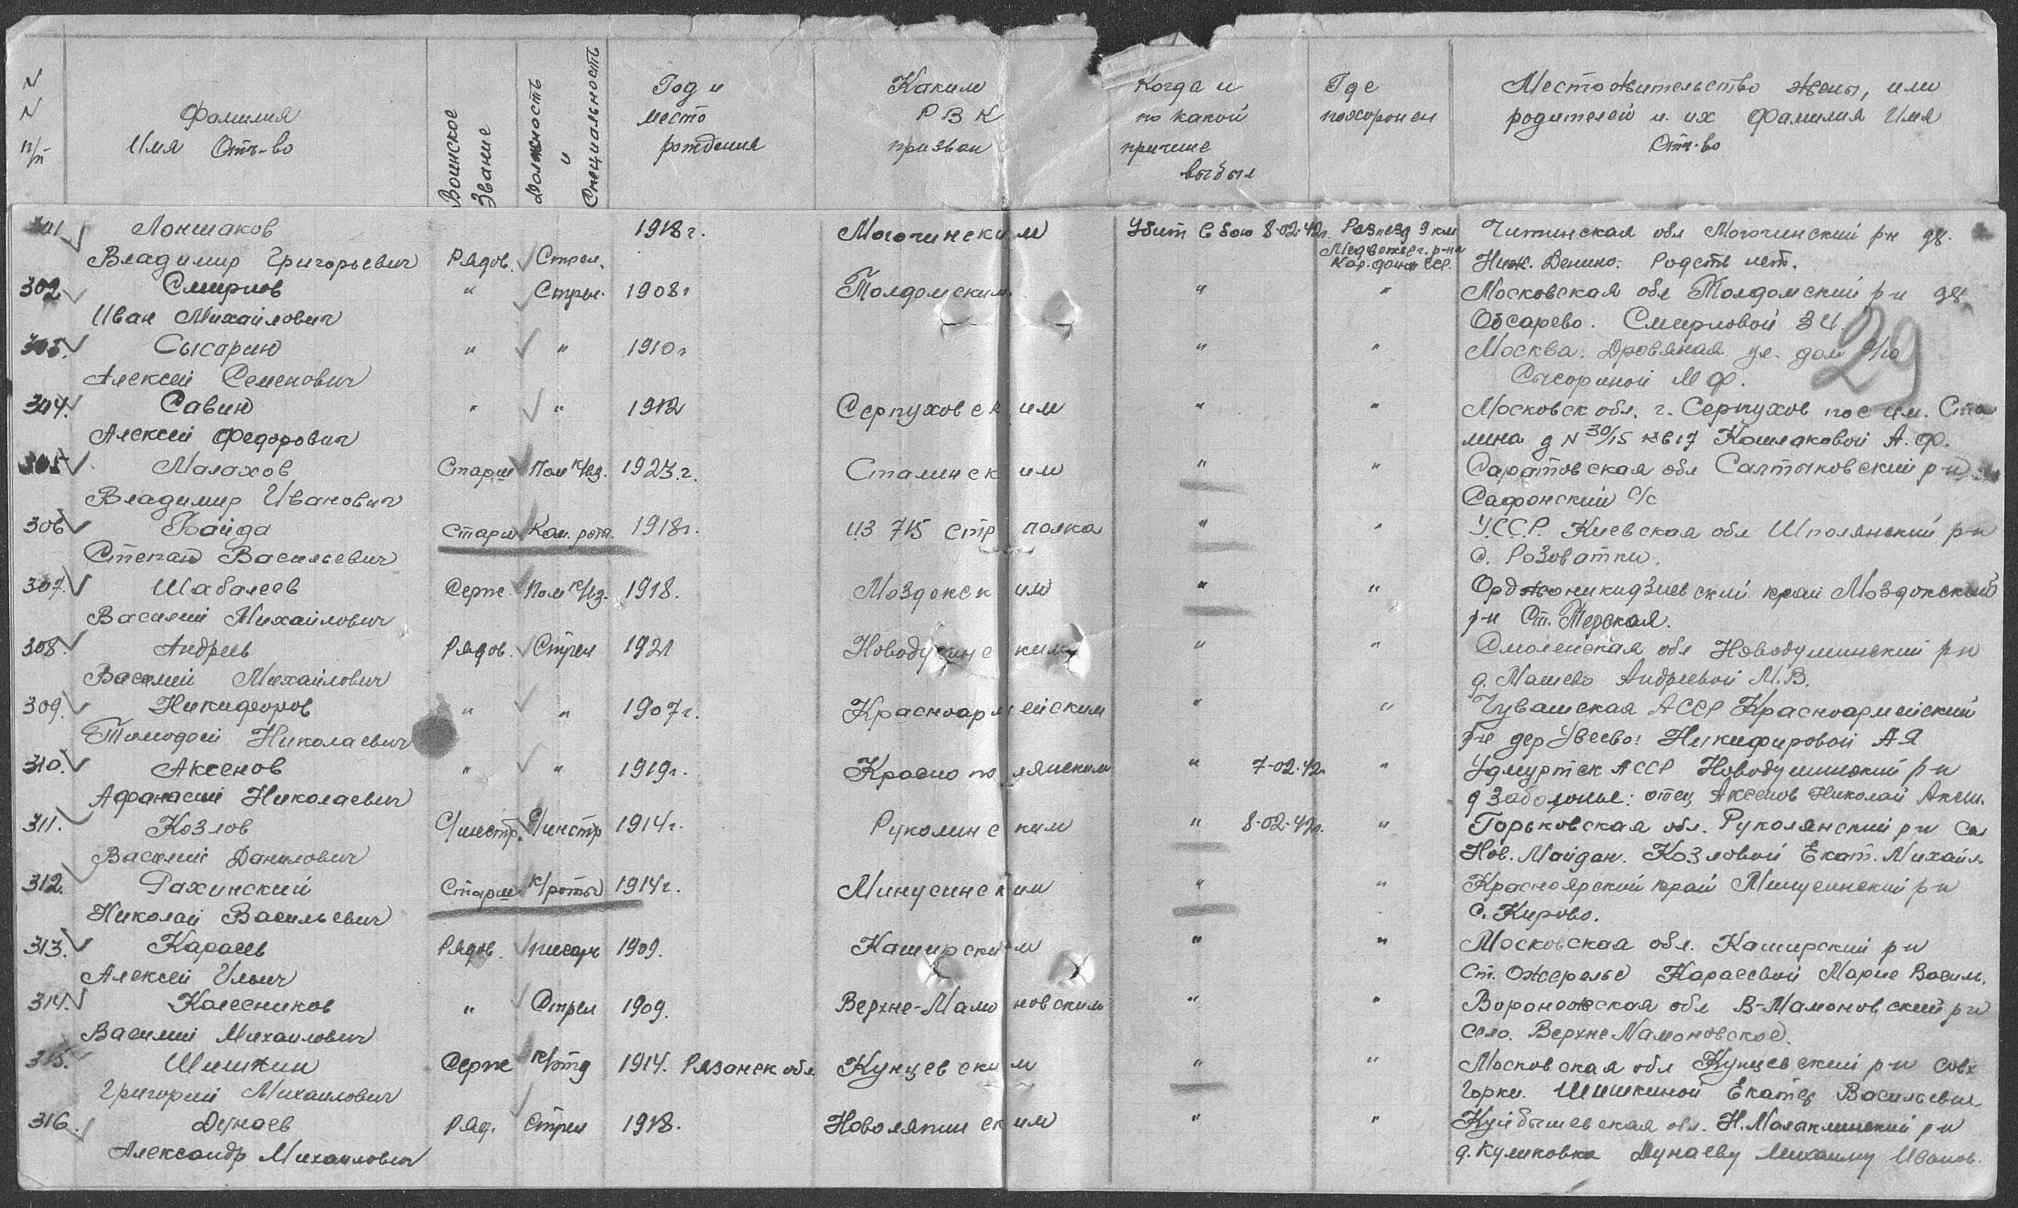 N N п/п
Фамилия Имя Отч-во
Воинское Звание
Должность и Специальность
Год и место рождения
Каким РВК призван
Когда и по какой причине выбыл
Где похоронен
Местожительство жены, или родителей и их Фамилия Имя Отч-во
301 Лоншаков 1918г. Могочинским Убит в бою 8-02-42г. Разъезд 9 км Читинская обл Могочинский рн дв.
Владимир Григорьевич Рядов. Стрел. Медвежьег. р-на Кар. фин. ССР. Ниж. Родств нет.
302 Смирнов " Стрел. 1908г Талдомским " " Московская обл Талдомский р-н дв.
Иван Михайлович Обсарево. Смирновой З И.
303. Сысорин " " 1910г " " Москва. Дровяная ул. дом 9/10
29
Алексей Семенович Сысориной М Ф.
304. Савин " " 1912 Серпуховским " " Московск обл. г. Серпухов пос им. Ста
Алексей Федорович лина д N 30/15 кв 17 Кошлаковой А. Ф.
305 Малахов Старш Пом к/вз. 1923.г. Сталинским " " Саратовская обл Салтыковский р-н
Владимир Иванович Сафонский с/с
306 Байда Старш Ком. рот. 1918г. из 715 стр полка " " У.С.С.Р. Киевская обл Шполянский р-н
Степан Васильевич с. Розоватки.
307. Шабалеев Серж. Пом к/вз. 1918. Моздокским " " Орджоникидзиевский край Моздокский
Василий Михайлович р-н Ст. Терская.
308 Андреев Рядов. Стрел 1921 " " Смоленская обл Новодугинский р-н
Василий Михайлович д. Машево Андреевой М.В.
309. Никифоров " " 1907г. Красноармейским " " Чувашская АССР Красноармейский
Тимофей Николаевич р-н дер Убеево: Никифировой А Я
310. Аксенов " " 1919г. Краснополянским " 7-02-42г " Удмуртск АССР р-н
Афанасий Николаевич д Заболонье: отец Аксенов Николай
311. Козлов С/инстр. С/инстр 1914г. Руколинским " 8-02-42г. " Горьковская обл. Руколянский р-н Сел
Василий Данилович Нов. Майдан. Козловой Екат. Михайл.
312. Рахинский Старш К/роты 1914г. Минусинским " " Красноярский край Минусинский р-н
Николай Васильевич с. Кирово.
313. Караев Рядов. писарь 1909. Каширским " " Московская обл. Каширский р-н
Алексей Ильич ст. Ожерелье Караеевой Марие Василь.
314. Колесников " Стрел 1909. Верхне-Мамоновским " " Воронежская обл В-Мамоновский р-н
Василий Михаилович село. Верхне Мамоновское.
315. Шишкин Серж к/отд 1914. Рязанск обл Кунцевским " " Московская обл Кунцевский р-н совх
Григорий Михаилович Горки. Шишкиной Екатер Васильевне
316. Дунаев Ряд. Стрел 1918. " " Куйбышевская обл. Н.Малыклинский р-н
Александр Михаилович д. Куликовка Дунаеву Михаилу Иванов.